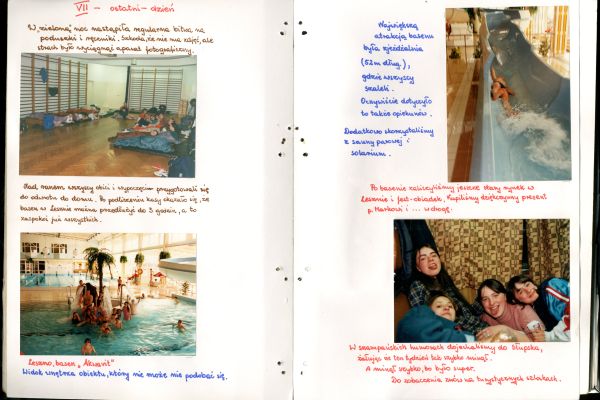 VII - ostatni - dzień
W „zieloną” noc nastąpiła regularna bitwa na
poduszki i ręczniki. Szkoda, że nie ma zdjęć, ale
strach było wyciągnąć aparat fotograficzny.
Nad ranem wszyscy obici i wypoczęci przygotowali się
do odwrotu do domu. Po podliczeniu kasy okazało się, że
basen w Lesznie można przedłużyć do 3 godzin, a to
zaspokoi już wszystkich.
Leszno, basen „Akwawit”
Widok wnętrza obiektu, który nie może nie podobać się.
Największą
atrakcją basenu
była zjeżdżalnia
(52m dług.),
gdzie wszyscy
szaleli.
Oczywiście dotyczyło
to także opiekunów.
Dodatkowo skorzystaliśmy
z sauny parowej i
solarium.
Po basenie zaliczyliśmy jeszcze stary rynek w
Lesznie i fest-obiadek. Kupiliśmy dziękczynny prezent
p. Markowi i ... w drogę.
W szampańskich humorach dojechaliśmy do Słupska,
żałując że ten tydzień tak szybko minął.
A minął szybko, bo było super.
Do zobaczenia znów na turystycznych szlakach.